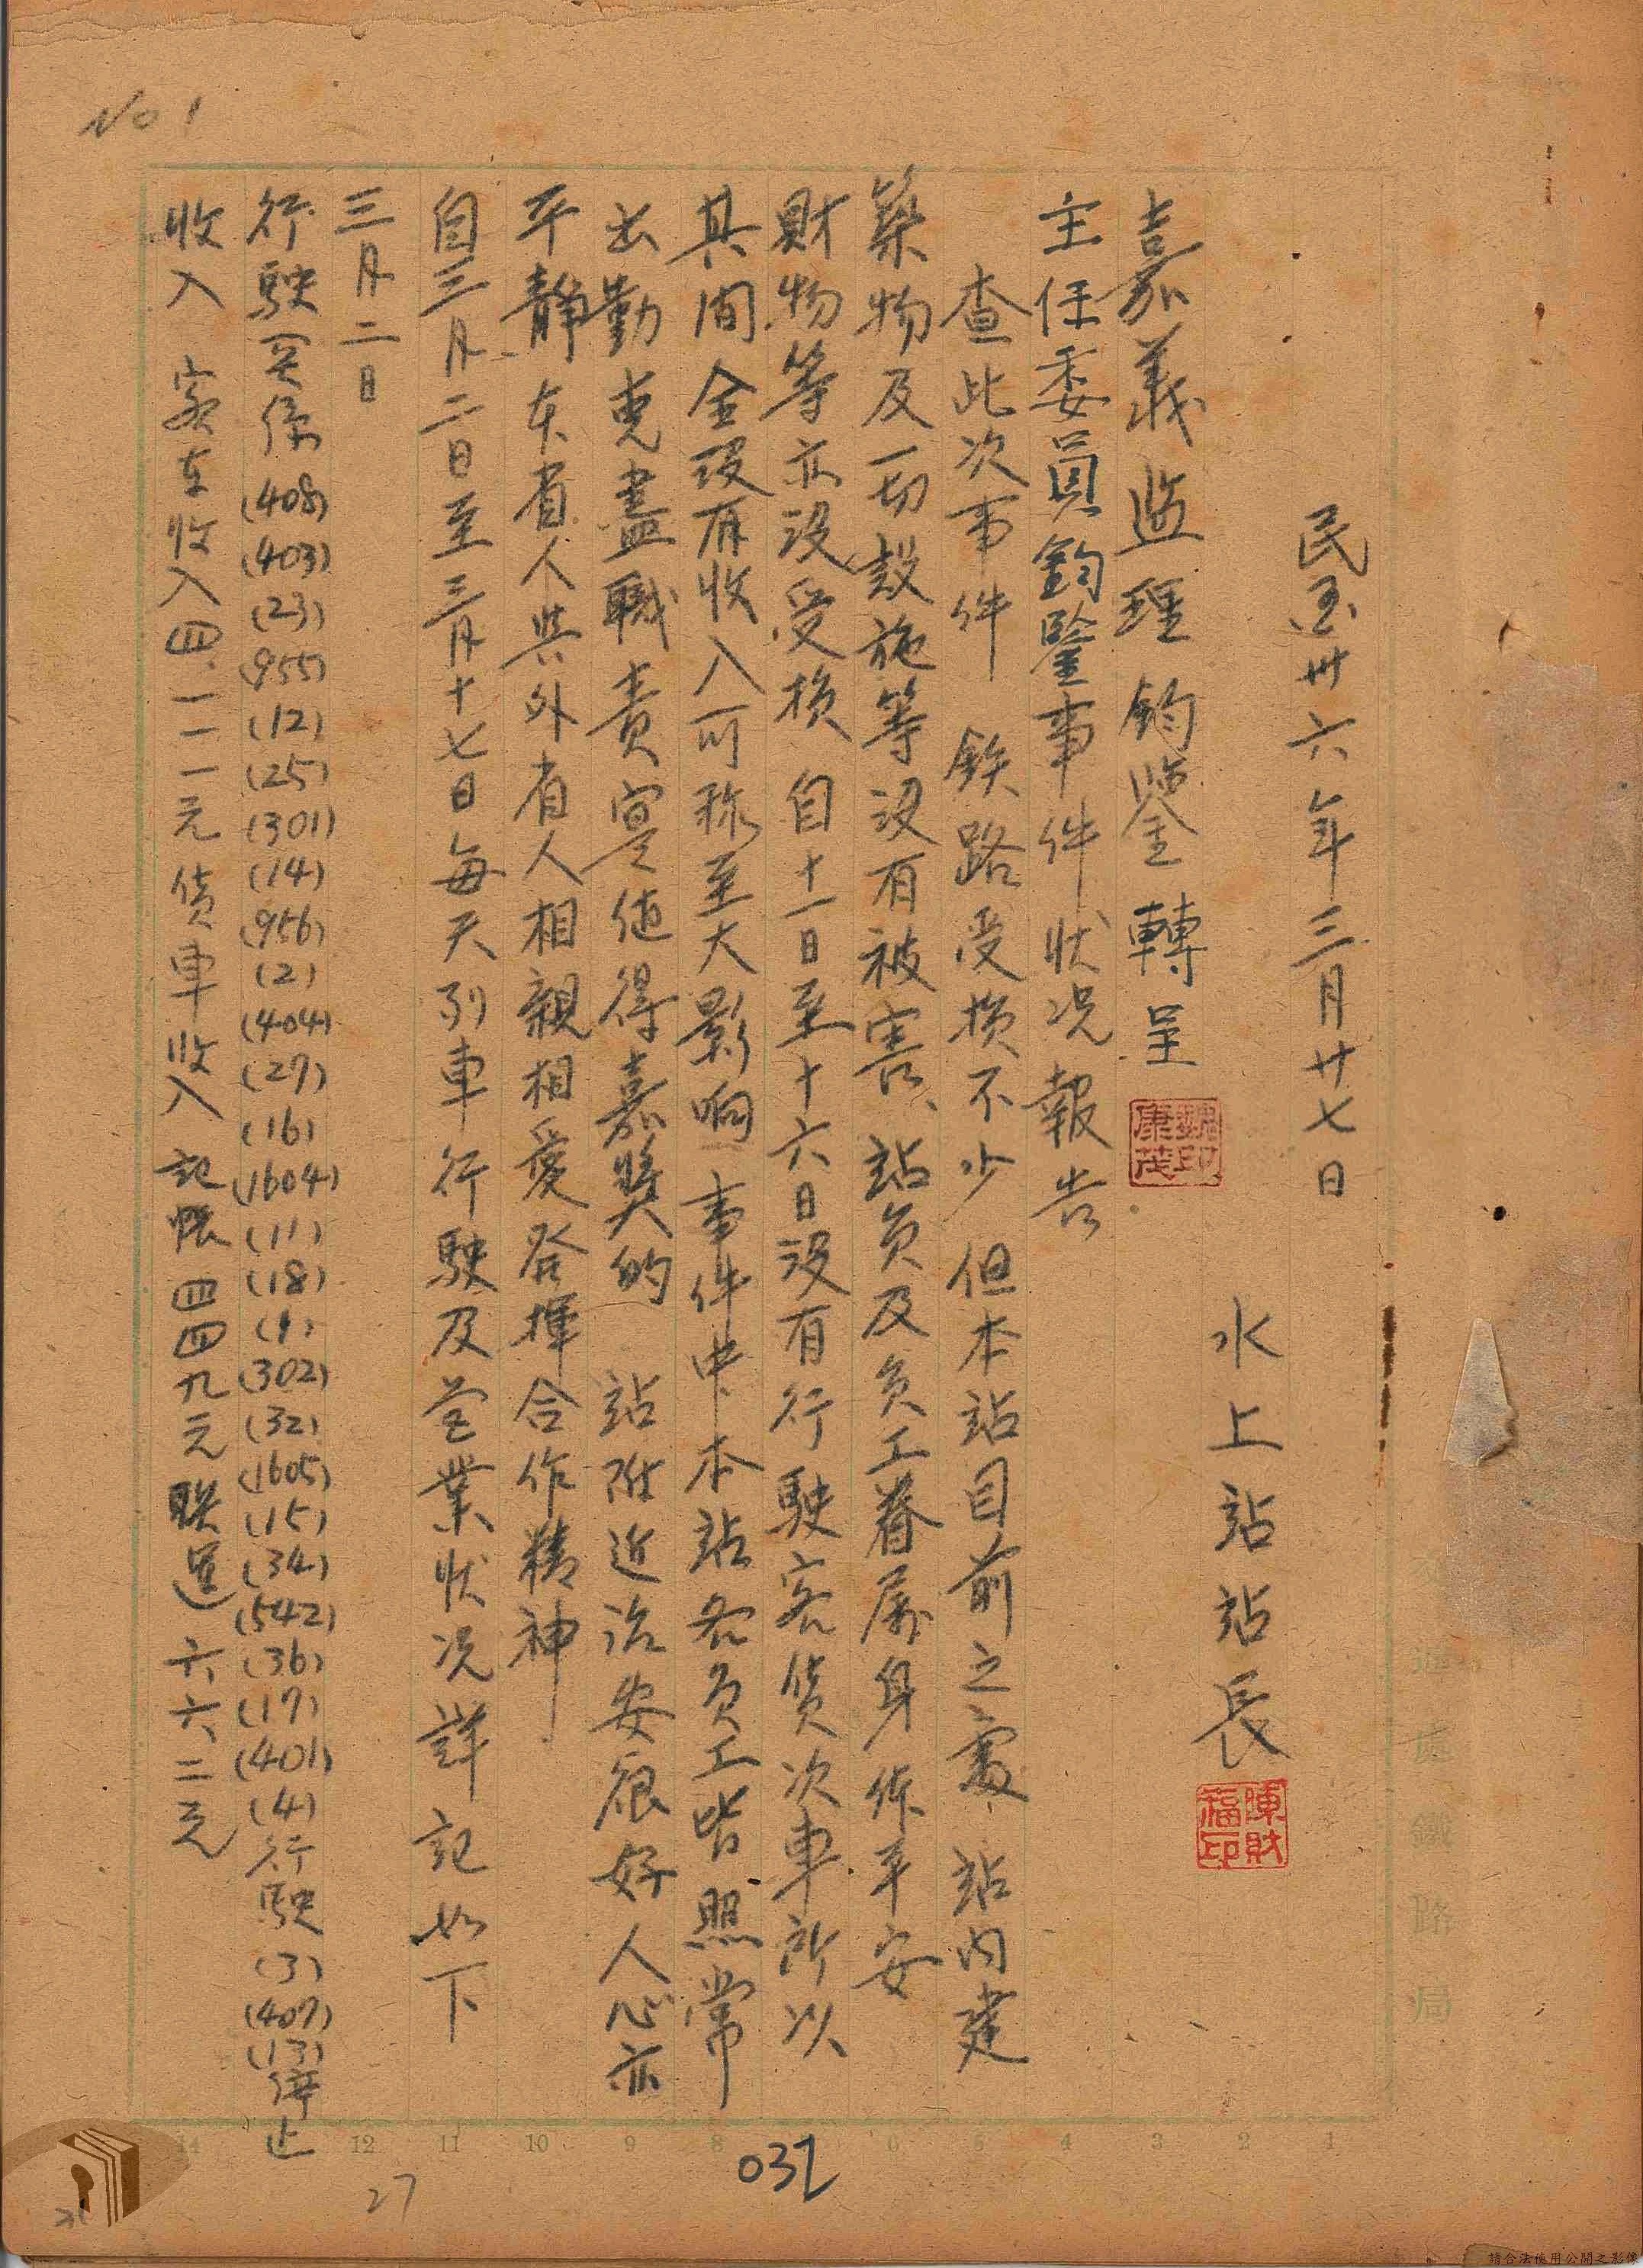 No 1
民国卅六年三月廿七日
水上站站長
陳財福印
嘉義監理鈞鑒轉呈
魏康茂印
主任委員鈞鑒事件状况報告
查此次事件 鉄路受损不少 但本站目前之處 站内建
築物及一切設施等没有被害、站員及員工眷属身体平安
財物等亦没受损 自十一日至十六日没有行駛客货次車所以
其间全没有收入可称至大影响 事件中本站各員工皆照常
出勤克盡職责寔值得嘉獎的 站附近治安很好人心亦
平静本省人與外省人相親相爱發揮合作精神
自三月二日至三月十七日每天列車行駛及营業状况詳記如下
三月二日
行駛 (408) (403) (23) (955) (12) (25) (301) (14) (956) (2) (404) (27) (16) (1604) (11) (18) (1) (302) (32) (1605) (15) (34) (542) (36) (17) (401) (4) 行駛 (3) (407) (13) 停止
收入 客车收入四.一一一元 货車收入 記帳四四九元 联運六六二元
鐵路局
1 2 3 4 5 6 8 9 10 11 12 14
27
032
請合法使用公開之影像